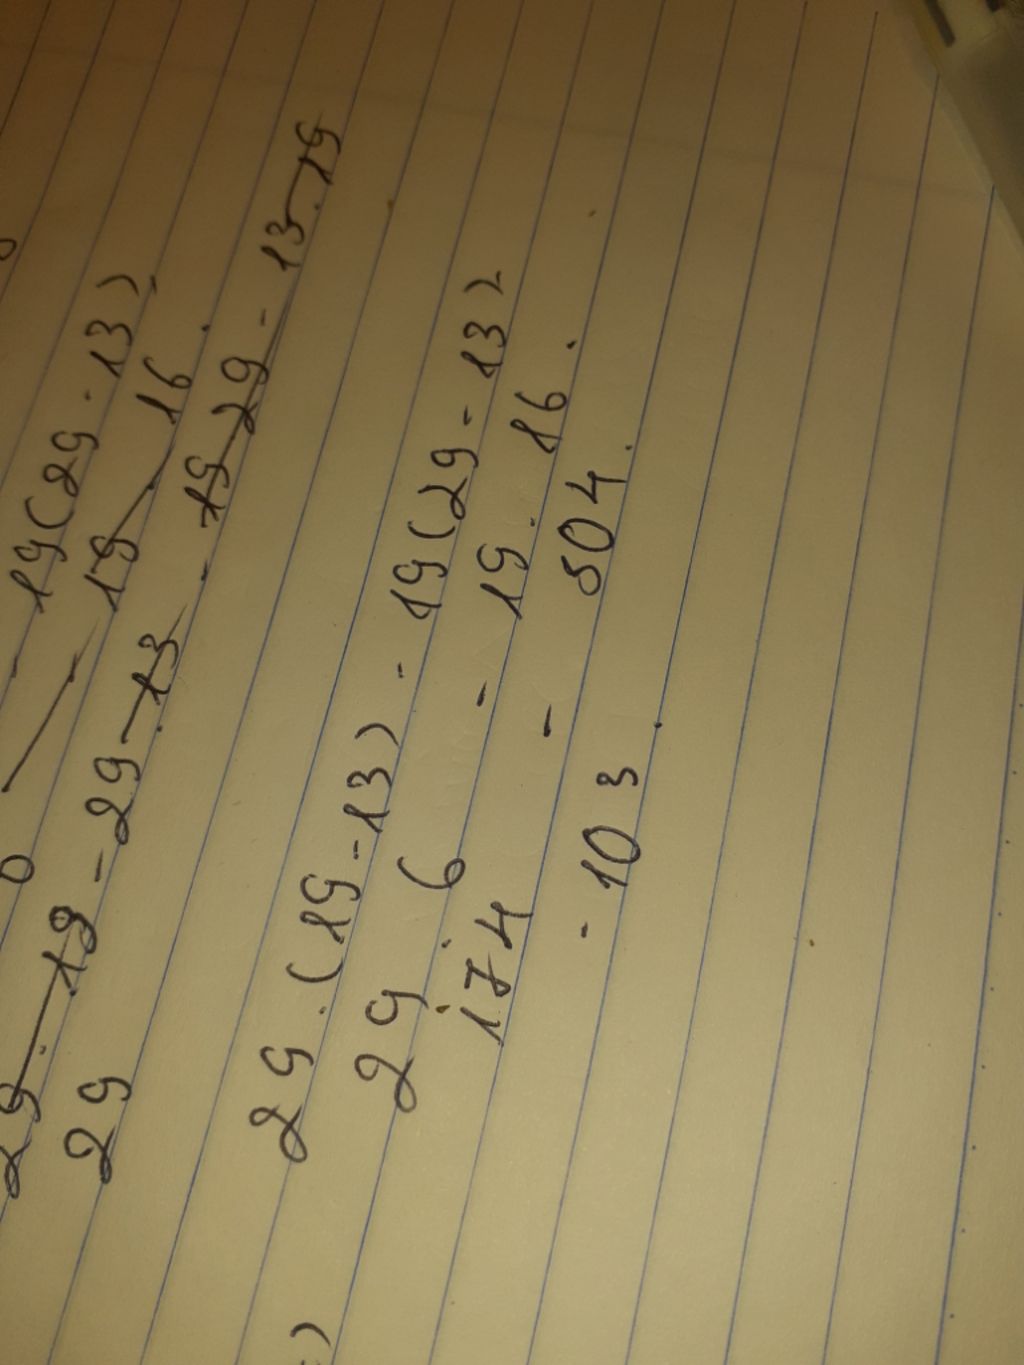 19(29-13)
0 - 19 . 16.
29 . 19 - 29 - 13 - 19 29 - 13.19
29
29 . (19-13) - 19(29-13)
29 . 6 - 19 . 16.
174 - 304.
- 103